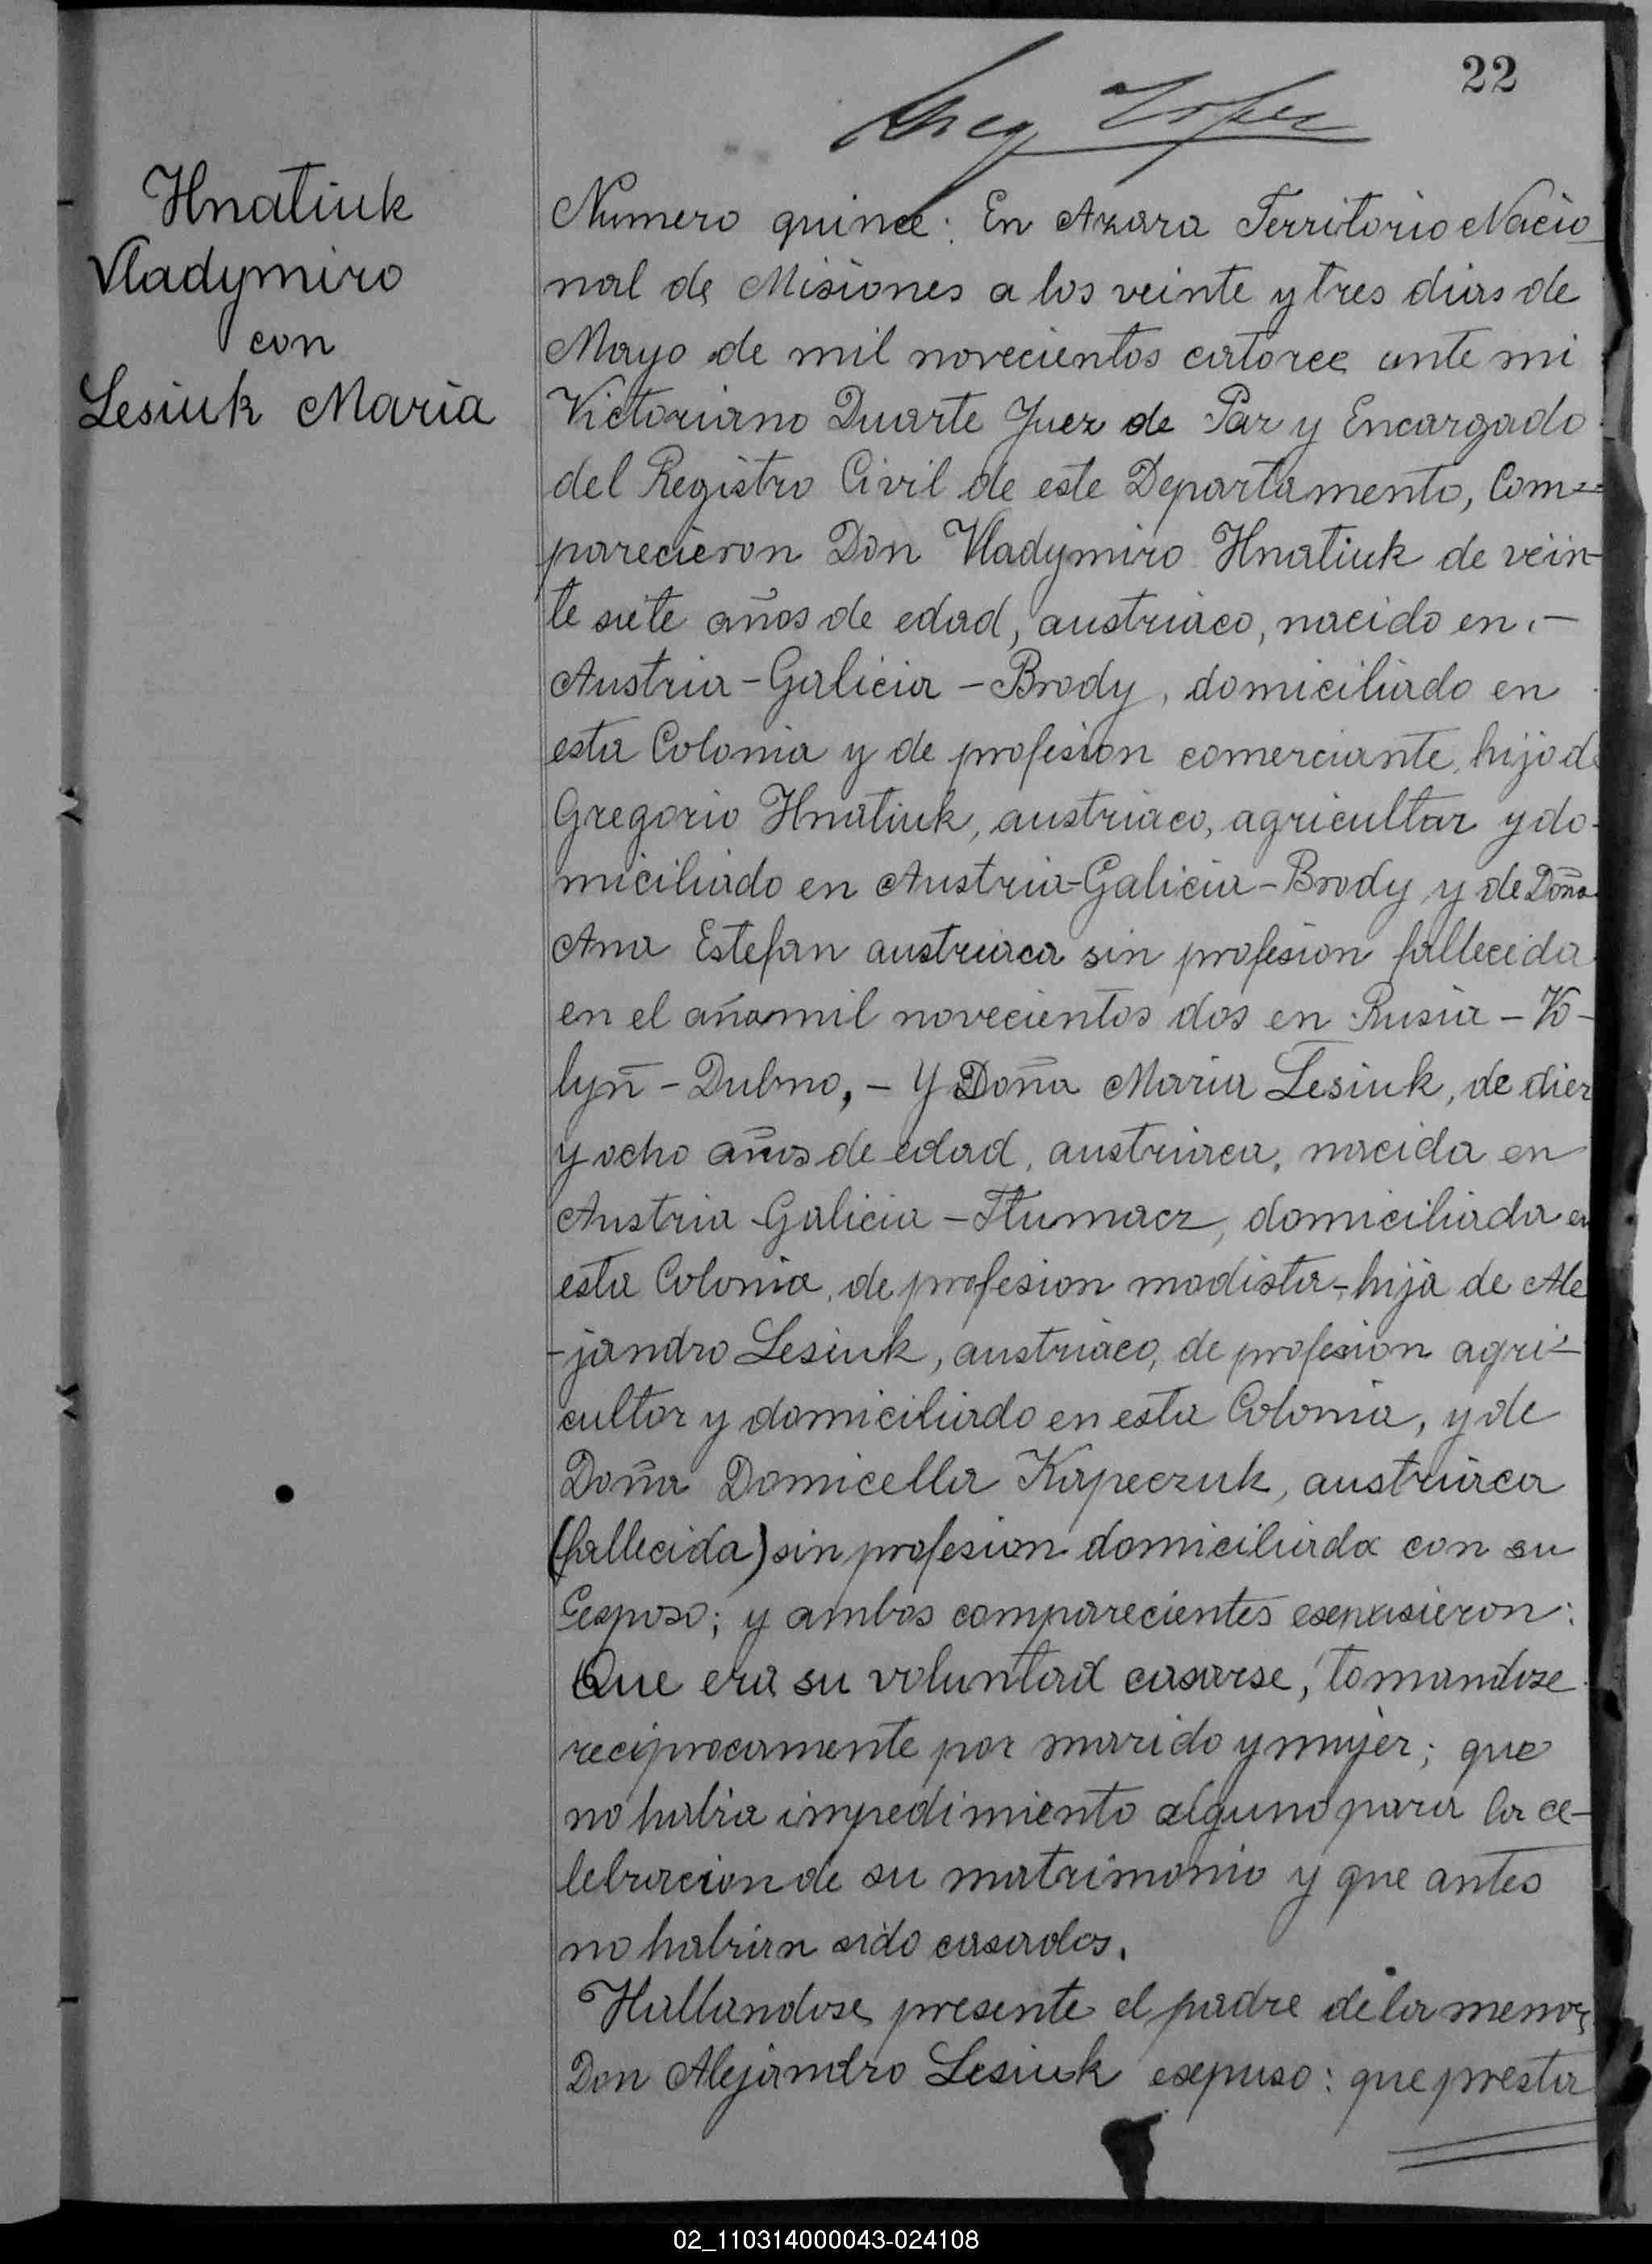 22
Hnatiuk
Vladymiro
con
Lesiuk Maria
Numero quince: En Azara Territorio Nacio
nal de Misiones a los veinte y tres dias de
Mayo de mil novecientos catorce ante mi
Victoriano Duarte Juez de Paz y Encargado
del Registro Civil de este Departamento, Com=
parecieron Don Vladymiro Hnatiuk de vein-
te siete años de edad, austriaco, nacido en.-
Austria-Galicia-Brody, domiciliado en
esta Colonia y de profesion comerciante, hijo de
Gregorio Hnatiuk, austriaco, agricultor y do-
miciliado en Austria-Galicia-Brody y de Doña
Ana Estefan austriaca sin profesion fallecida
en el año mil novecientos dos en Rusia-Vo-
lyñ-Dubno,- Y Doña Maria Lesiuk, de diez
y ocho años de edad, austriaca, nacida en
Austria-Galicia-Tlumacz, domiciliada en
esta Colonia, de profesion modista-hija de Ale
-jandro Lesiuk, austriaco, de profesion agri-
cultor y domiciliado en esta Colonia, y de
Doña Domicella Kapeczuk, austriaca
(fallecida) sin profesion domiciliada con su
Esposo; y ambos comparecientes
Que era su voluntad casarse, tomandose
reciprocamente por marido y mujer; que
no habia impedimiento alguno para la ce-
lebracion de su matrimonio y que antes
no habian sido casados.
Hallandose presente el padre de la menor,
Don Alejandro Lesiuk expuso: que presta
02_110314000043-024108